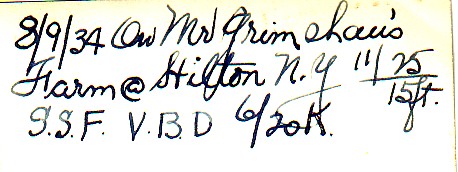 8/9/34 On Mr Grimshaw's
Farm @ Hilton N.Y 11/25
15ft.
S.S.F. V.B.D 6/20K.